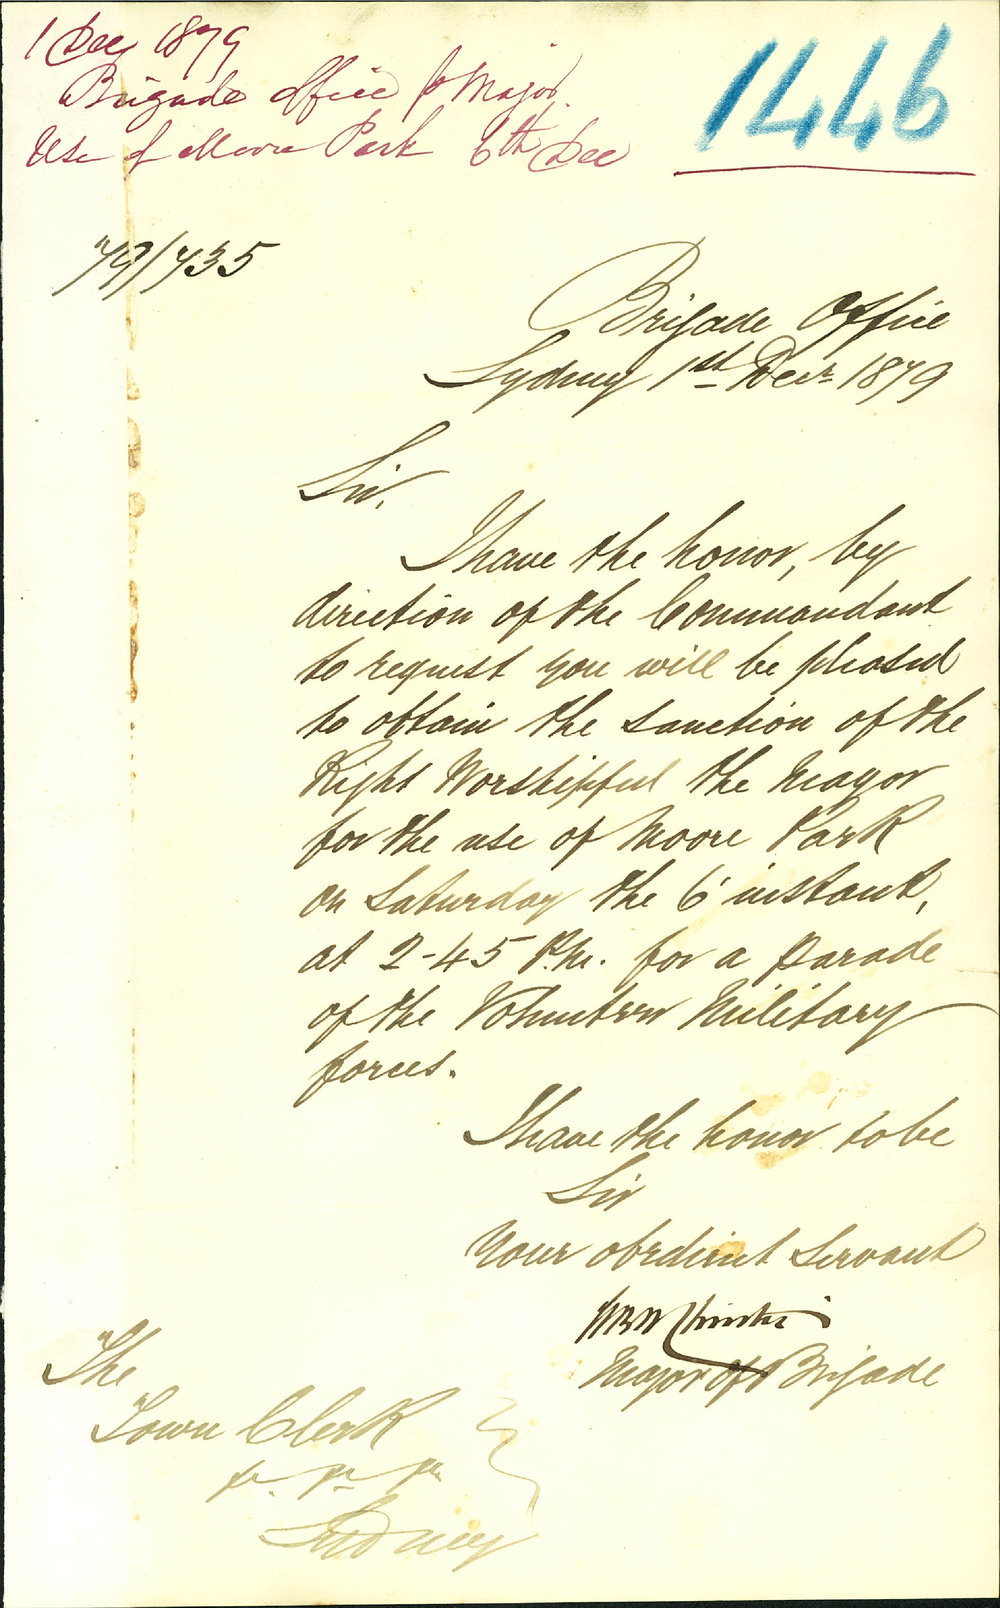 1 Dec 1879
Brigade Office Major
Use of Moore Park 6th Dec
1446
79/735
Brigade Office
Sydney 1st Decr 1879
Sir,
I have the honor, by
direction of the Commandant
to request you will be pleased
to obtain the sanction of the
Right Worshipful the Mayor
for the use of Moore Park
on Saturday the 6' instant,
at 2-45 P.M. for a parade
of the Volunteer Military
forces.
I have the honor to be
Sir
Your obedient Servant
Christie
Major of Brigade
The
Town Clerk
Sydney